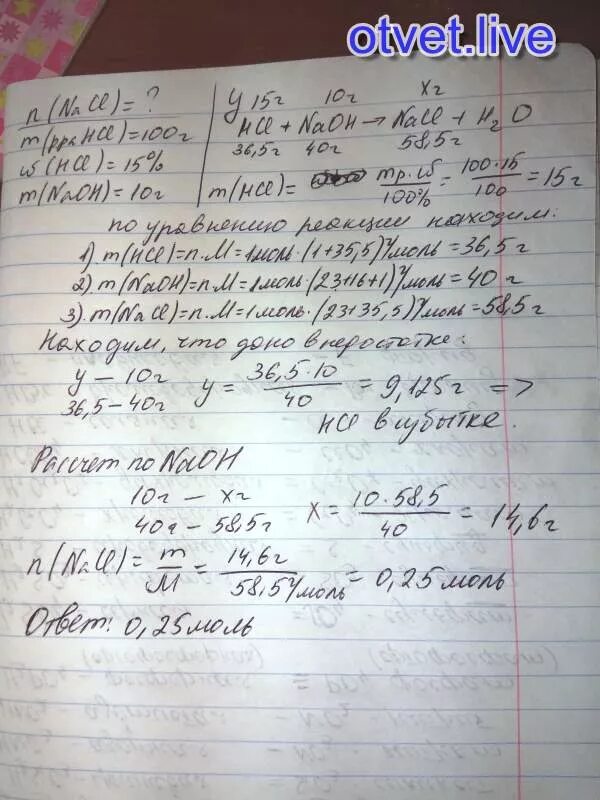 otvet.live
n(NaCl)=?
m(рра HCl)=100г
ω(HCl)=15%
m(NaOH)=10г
y 15г 10г xг
HCl + NaOH → NaCl + H₂O
36,5г 40г 58,5г
m(HCl)= mр.ω/100% = 100·15/100 = 15г
по уравнению реакции находим:
1) m(HCl)=n.M=1моль·(1+35,5)г/моль=36,5г
2) m(NaOH)=n.M=1моль·(23+16+1)г/моль=40г
3) m(NaCl)=n.M=1моль·(23+35,5)г/моль=58,5г
Находим, что дано в недостатке:
y – 10г y = 36,5·10/40 = 9,125г =>
36,5 – 40г
HCl в избытке.
Рассчет по NaOH
10г – xг x = 10·58,5/40 = 14,6г
40г – 58,5г
n(NaCl)= m/M = 14,6г/58,5г/моль = 0,25моль
Ответ: 0,25моль